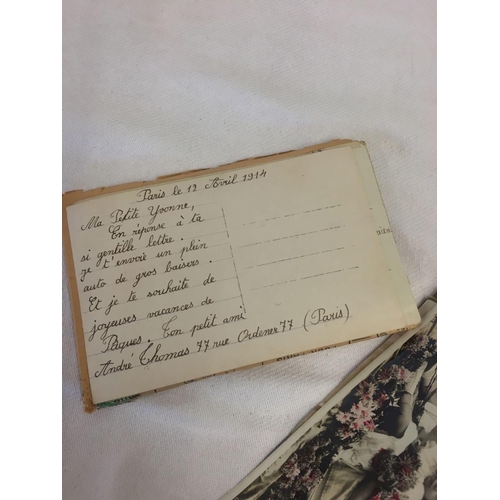 Paris le 12 Avril 1914
Ma Petite Yvonne,
En réponse à ta
si gentille lettre.
je t'envoie un plein
auto de gros baisers.
Et je te souhaite de
joyeuses vacances de
Pâques. Ton petit ami
André Thomas 77 rue Ordener 77 (Paris)